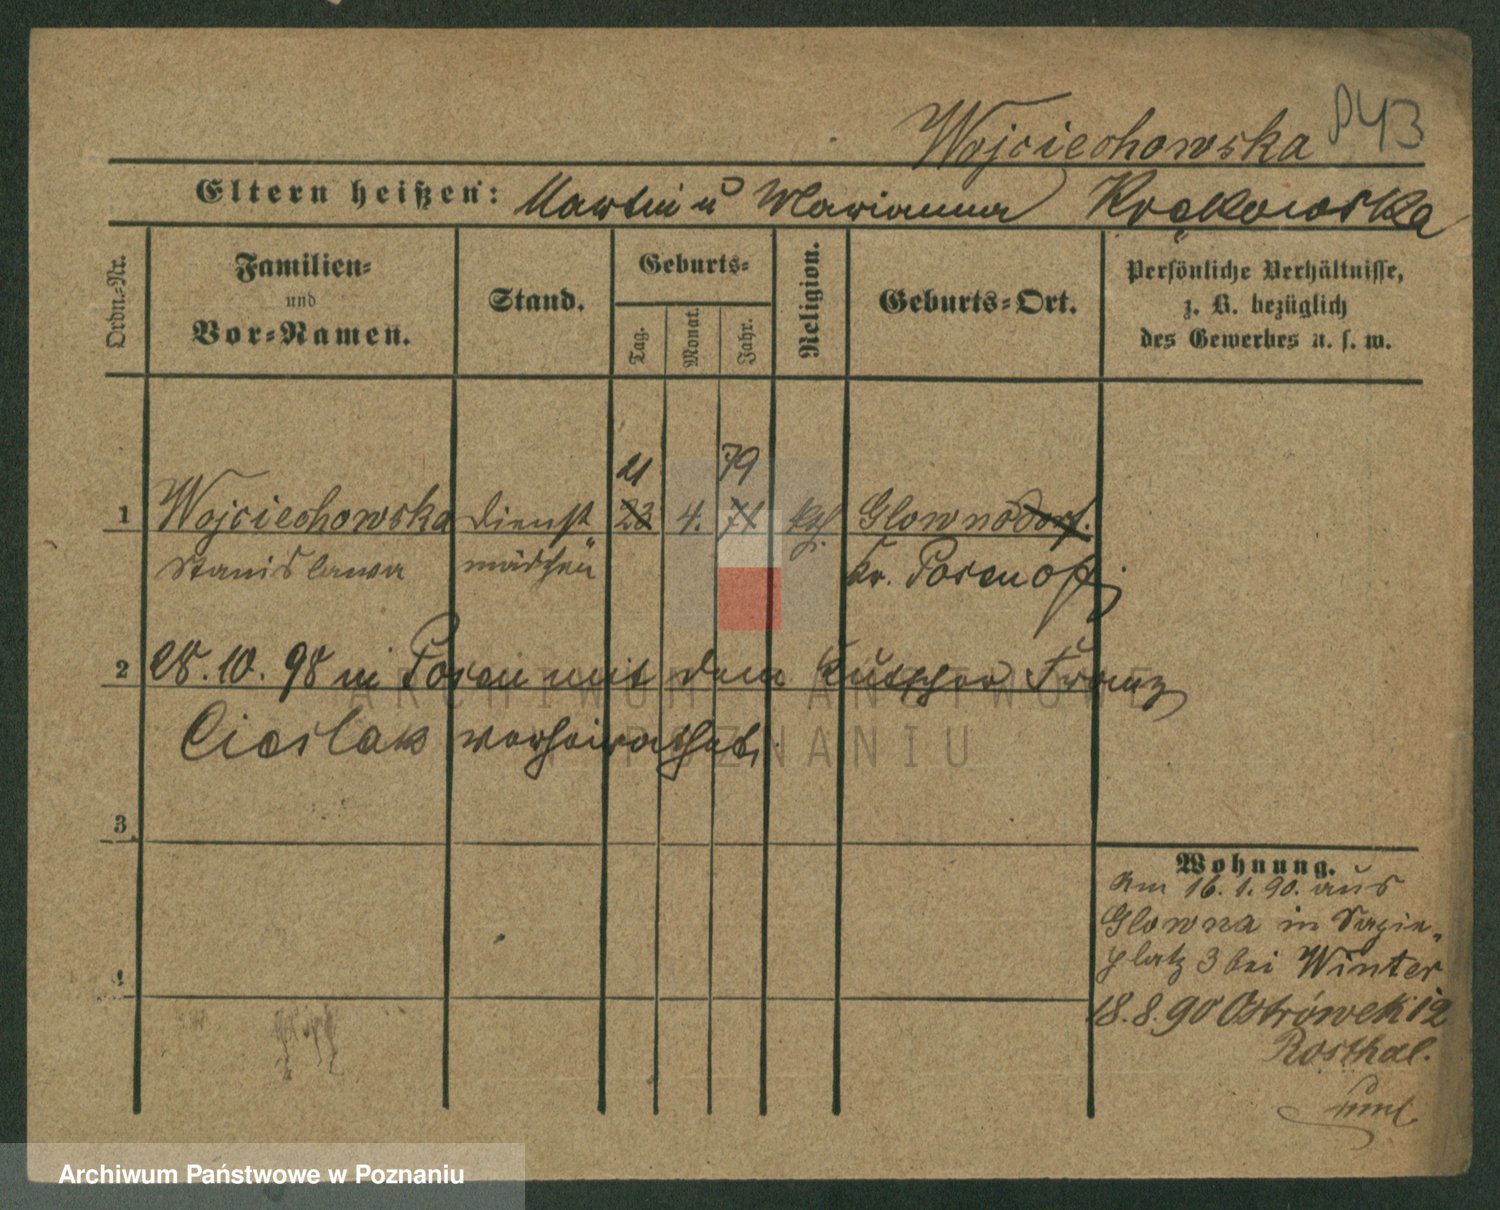 Wojciechowska
Eltern heißen: Martin u Marianna Krąkowska
Ordn.-Nr.
Familien-
und
Vor-Namen.
Stand.
Geburts-
Tag.
Monat.
Jahr.
Religion.
Geburts-Ort.
Persönliche Verhältnisse,
z. B. bezüglich
des Gewerbes u. s. w.
21 79
1 Wojciechowska Dienst 23 4. 71 kth. Glownodorf.
Stanislawa mädchen Kr. Posen Ost
2 28.10.98 in Posen mit dem Kutscher Franz
Cieslak verheirathet.
3
4
Wohnung.
Am 16.1.90. aus
Glowna in Sapie-
platz 3 bei Winter
18.8.90 Ostrówek 12
Rosthal.
ARCHIWUM PAŃSTWOWE
W POZNANIU
Archiwum Państwowe w Poznaniu